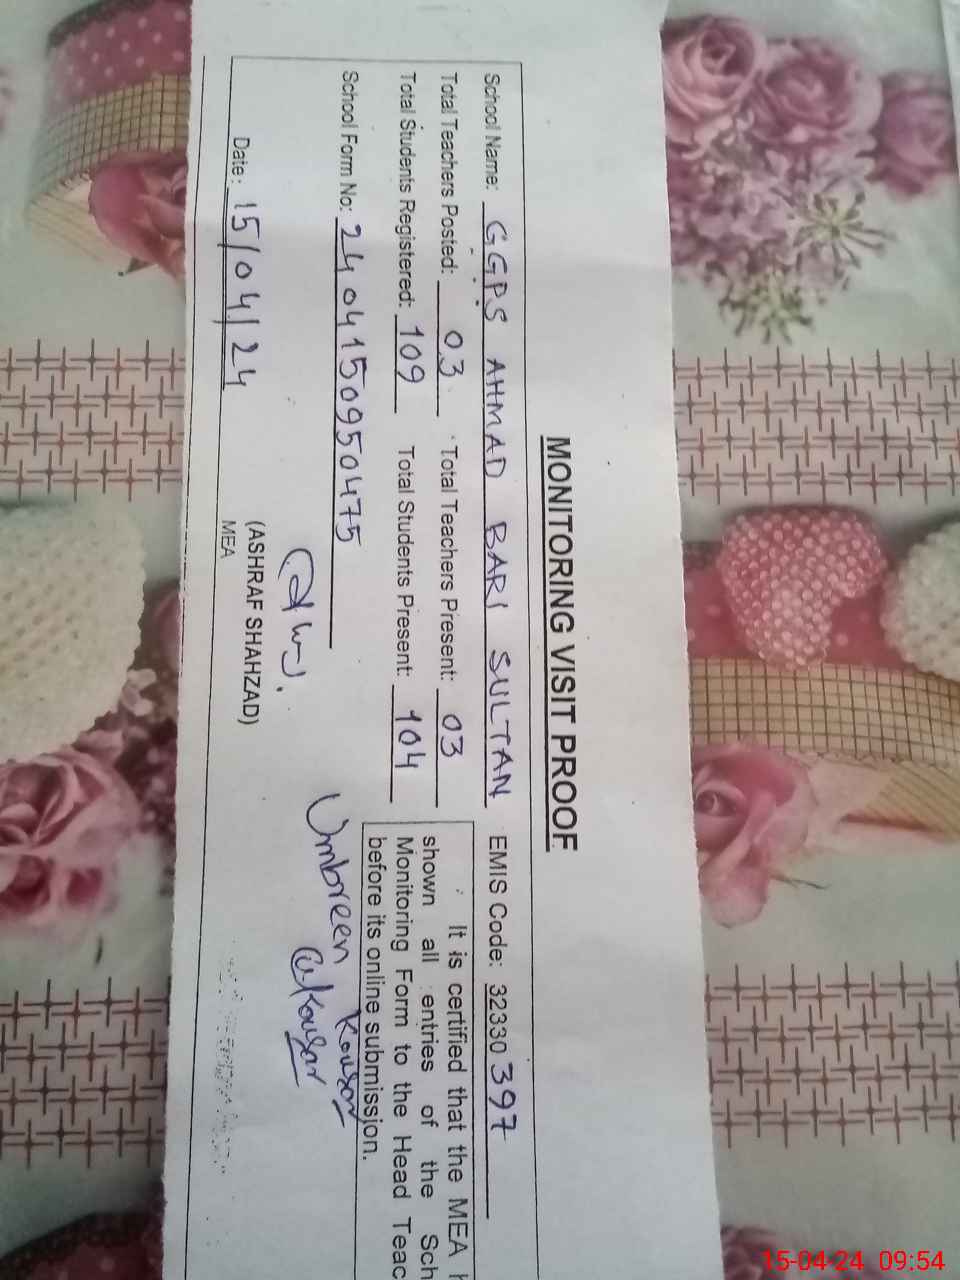 MONITORING VISIT PROOF
School Name: GGPS AHMAD BARI SULTAN EMIS Code: 32330397
Total Teachers Posted: 03 Total Teachers Present: 03
Total Students Registered: 109 Total Students Present: 104
School Form No: 2404150950475
It is certified that the MEA
shown all entries of the Sch
Monitoring Form to the Head Teac
before its online submission.
Umbreen Kousar
(ASHRAF SHAHZAD)
Date: 15/04/24 MEA
15-04-24 09:54